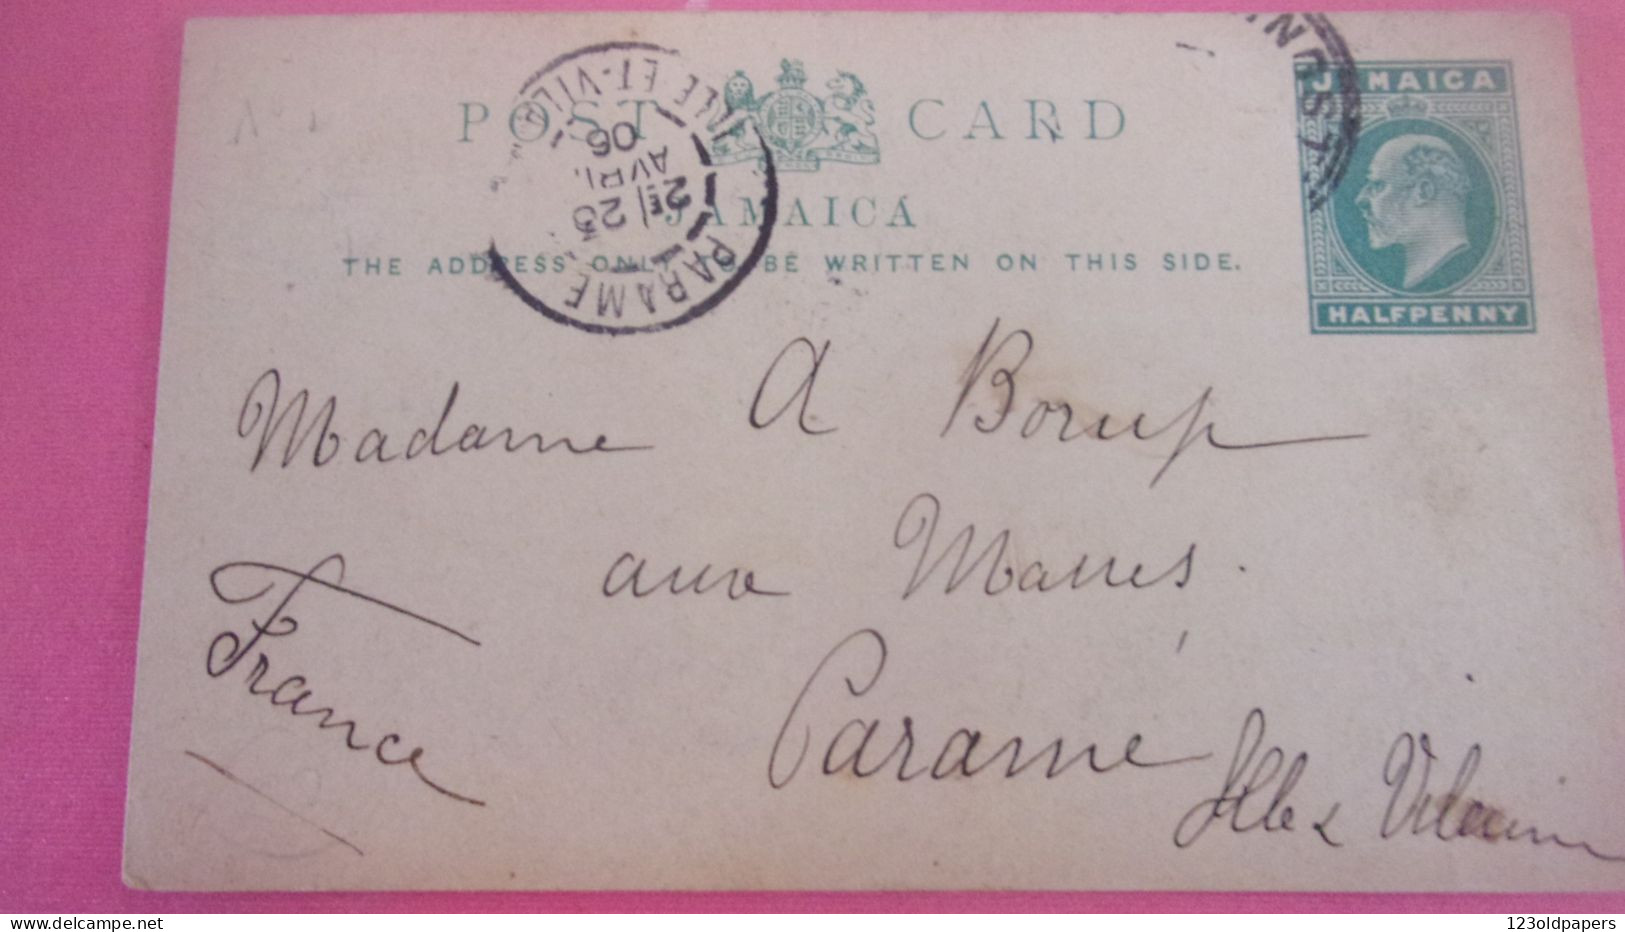 POST CARD
JAMAICA
THE ADDRESS ONLY TO BE WRITTEN ON THIS SIDE.
JAMAICA
HALFPENNY
PARAME
2E
25
AVRIL
06
ILLE-ET-VILNE
Madame A Borup
aux Masses.
Paramé
Ille & Vilaine
France
123oldpapers